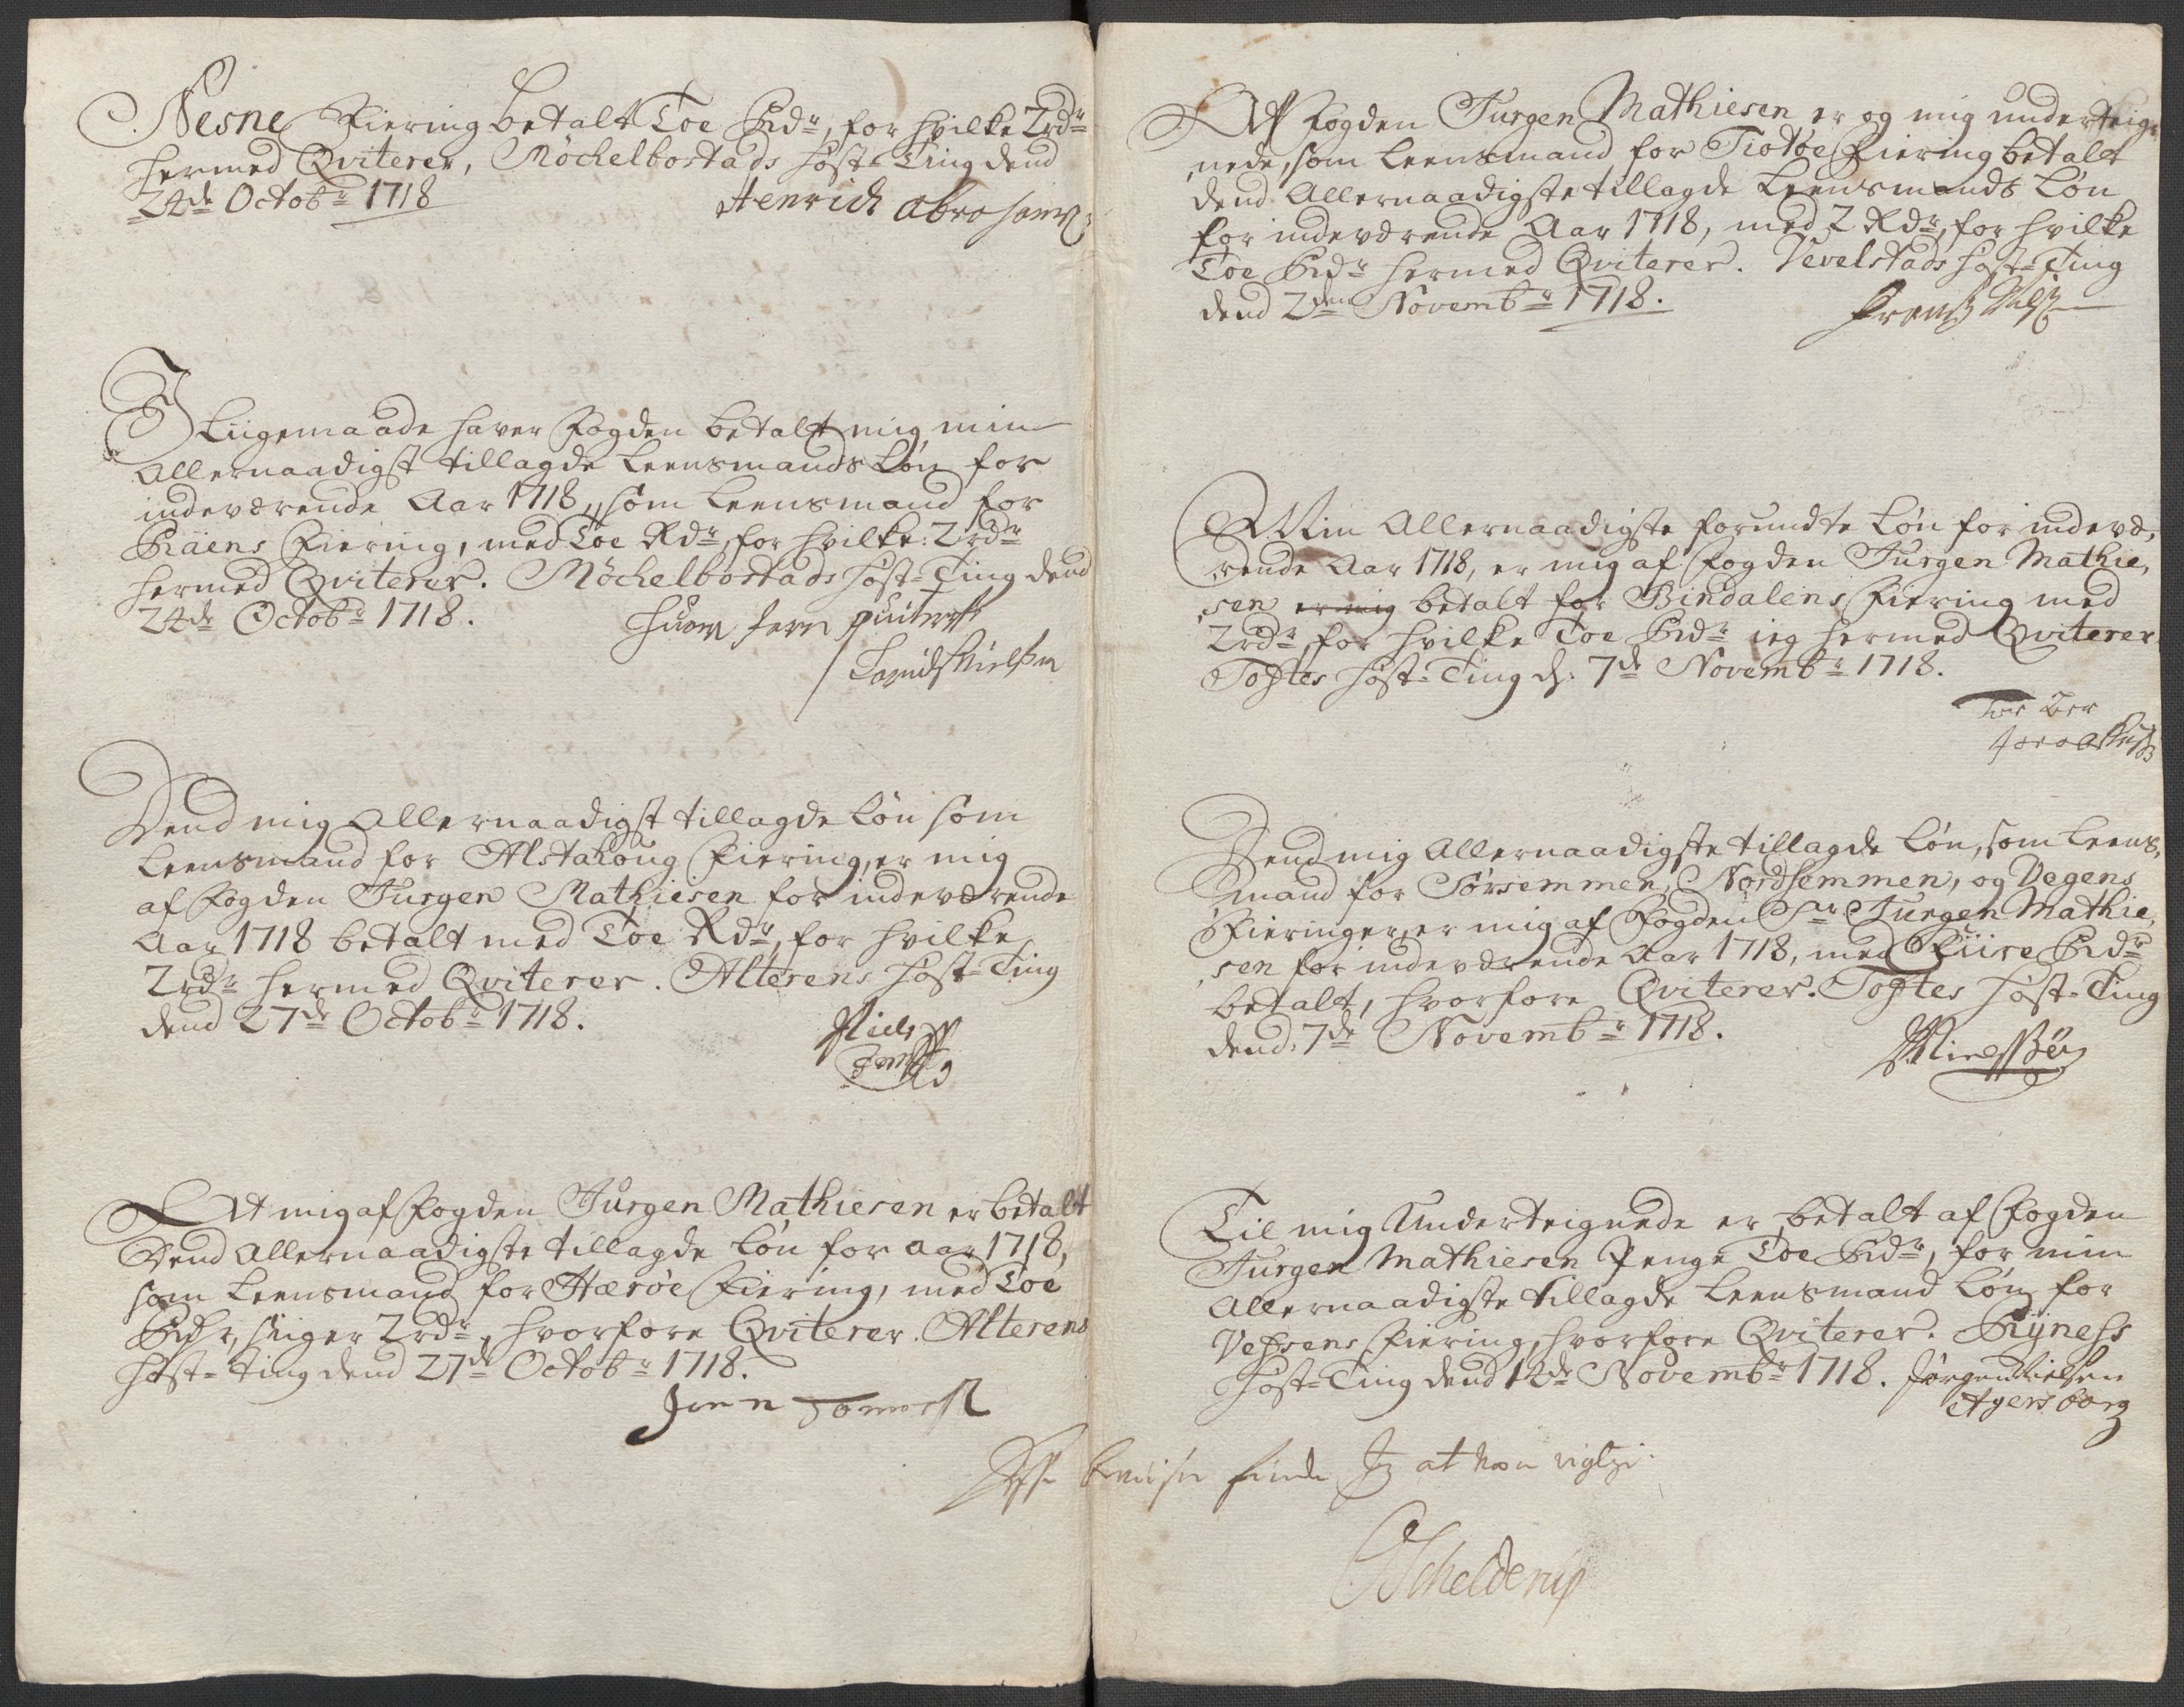 Nesne Fiering betalt Toe Rdr, for hvilke 2 rdr
hermed Qviterer, Möchelbostads Höst-Ting dend
24de Octobr 1718
Henrich Abrahams:
I Liigemaade haver Fogden betalt mig min
Allernaadigst tillagde Leensmands Løn for
indeværende Aar 1718, som Leensmand for
Raens Fiering, med Toe Rdr, for hvilke 2 rdr
hermed Qviterer. Möchelbostads Höst-Ting dend
24de Octobr 1718.
Dend mig Allernaadigst tillagde Løn som
Leensmand for Alstahoug Fiering, er mig
af Fogden Jurgen Mathiesen for indeværende
Aar 1718 betalt med Toe Rdr, for hvilke
2 rdr hermed Qviterer. Alterens Höst-Ting
dend 27de Octobr 1718.
Niels
At mig af Fogden Jurgen Mathiesen er betalt
Dend Allernaadigste tillagde Løn for Aar 1718,
som Leensmand for Herøe Fiering, med Toe
Rdr, siiger 2 rdr, hvorfore Qviterer. Alterens
Höst-Ting dend 27de Octobr 1718.
Af Fogden Jurgen Mathiesen er og mig underteig-
nede, som Leensmand for Tiotøe Fiering betalt
dend Allernaadigste tillagde Leensmands Løn
for indeværende Aar 1718, med 2 Rdr, for hvilke
Toe Rdr hermed Qviterer. Vevelstads Höst-Ting
dend 2den Novembr 1718.
Min Allernaadigste forundte Løn for indevæ-
rende Aar 1718, er mig af Fogden Jurgen Mathie-
sen er mig betalt for Bindalens Fiering med
2 rdr, for hvilke Toe Rdr ieg hermed Qviterer
Toftes Höst-Ting d: 7de Novembr 1718.
Dend mig Allernaadigste tillagde Løn, som Leens-
mand for Sørsemmen, Nordsemmen, og Vegens
Fieringer, er mig af Fogden Sr Jurgen Mathie-
sen for indeværende Aar 1718, med Fiire Rdr
betalt, hvorfore Qviterer. Toftes Höst-Ting
dend 7de Novembr 1718.
Til mig Underteignede er betalt af Fogden
Jurgen Mathiesen Penge Toe Rdr, for min
Allernaadigste tillagde Leensmand Løn for
Vefsens Fiering, hvorfore Qviterer. Rÿness
Höst-Ting dend 12de Novembr 1718. Jørgen Nielsen
Agersborg
finde Jeg at være rigtig.
Schelderup